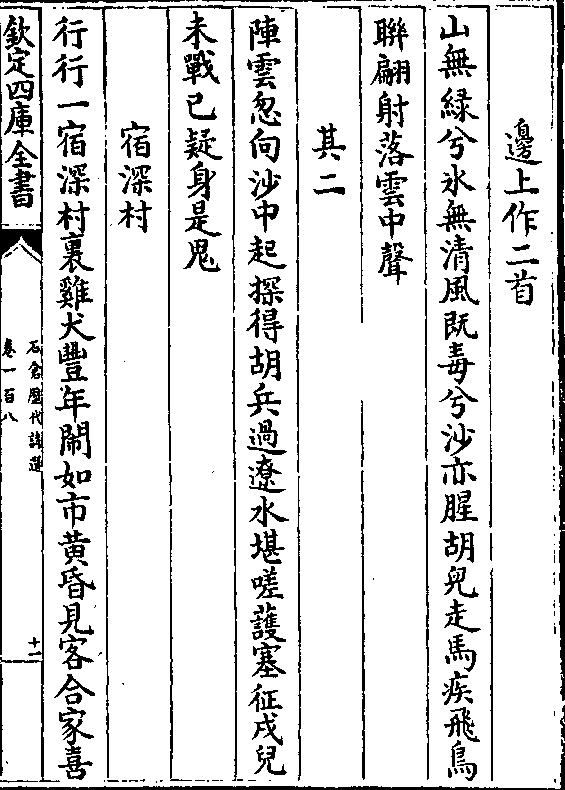 邊上作二首
山無緑兮水無清風既毒兮沙亦腥胡兒走馬疾飛鳥
聯翩射落雲中聲
其二
陣雲忽向沙中起探得胡兵過遼水堪嗟護塞征戍兒
未戰已疑身是鬼
宿深村
行行一宿深村裏雞犬豐年鬧如市黄昏見客合家喜
欽定四庫全書
石倉歴代詩選
卷一百八
十一